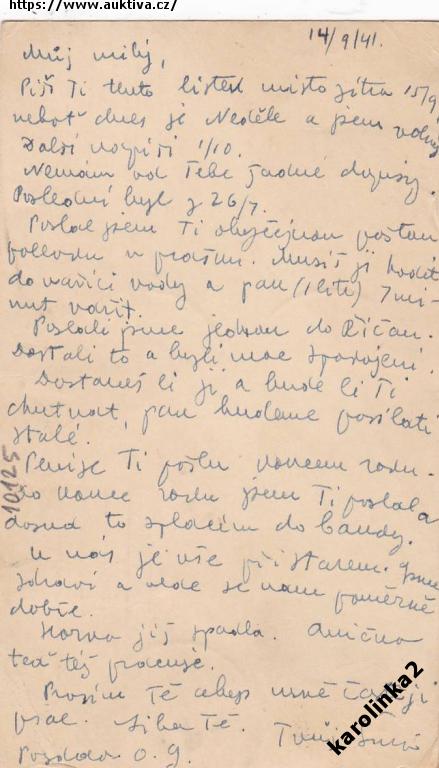 https://www.auktiva.cz/
14/9/41.
Můj milý,
Píši Ti tento lístek místo zítra 15/9
neboť dnes je Neděle a jsem volný
Další napíši 1/10.
Nemám od Tebe žádné dopisy.
Poslední byl z 26/7.
Poslal jsem Ti obyčejnou poštou
polévku v prášku. Musíš ji hodit
do vařící vody a pak (1 litr) 7 mi-
nut vařit.
Poslali jsme jednou do Říčan.
Dostali to a byli moc spokojeni.
Dostaneš li ji a bude li Ti
chutnat, pak budeme posílati
stále.
Peníze Ti pošlu koncem roku.
Do konce roku jsem Ti poslal a
dosud to splácím do banky.
U nás je vše při starém. Jsme
zdrávi a vede se nám poměrně
dobře.
již spadla. Anička
teď též pracuje.
Prosím Tě abys častěji
psal. Líbá Tě. Tvůj
Pozdrav O. J.
10125
karolinka2